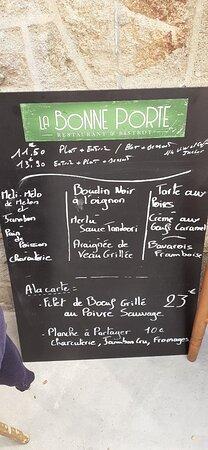 LA BONNE PORTE
RESTAURANT & BISTROT
11,50 Plat + Entrée / Plat + dessert
13,90 Entrée + Plat + dessert
Méli-Mélo
de Melon
et
Jambon
Pain
de
Poisson
Charcuterie
Boudin Noir
à l'oignon
Merlu
Sauce Tandori
Araignée de
Veau Grillée
Tarte aux
Poires
Crème aux
Café Caramel
Bavarois
Framboise
A la carte :
- Filet de Boeuf Grillé 23€
au Poivre Sauvage.
- Planche à Partager 10€
Charcuterie, Jambon Cru, Fromages